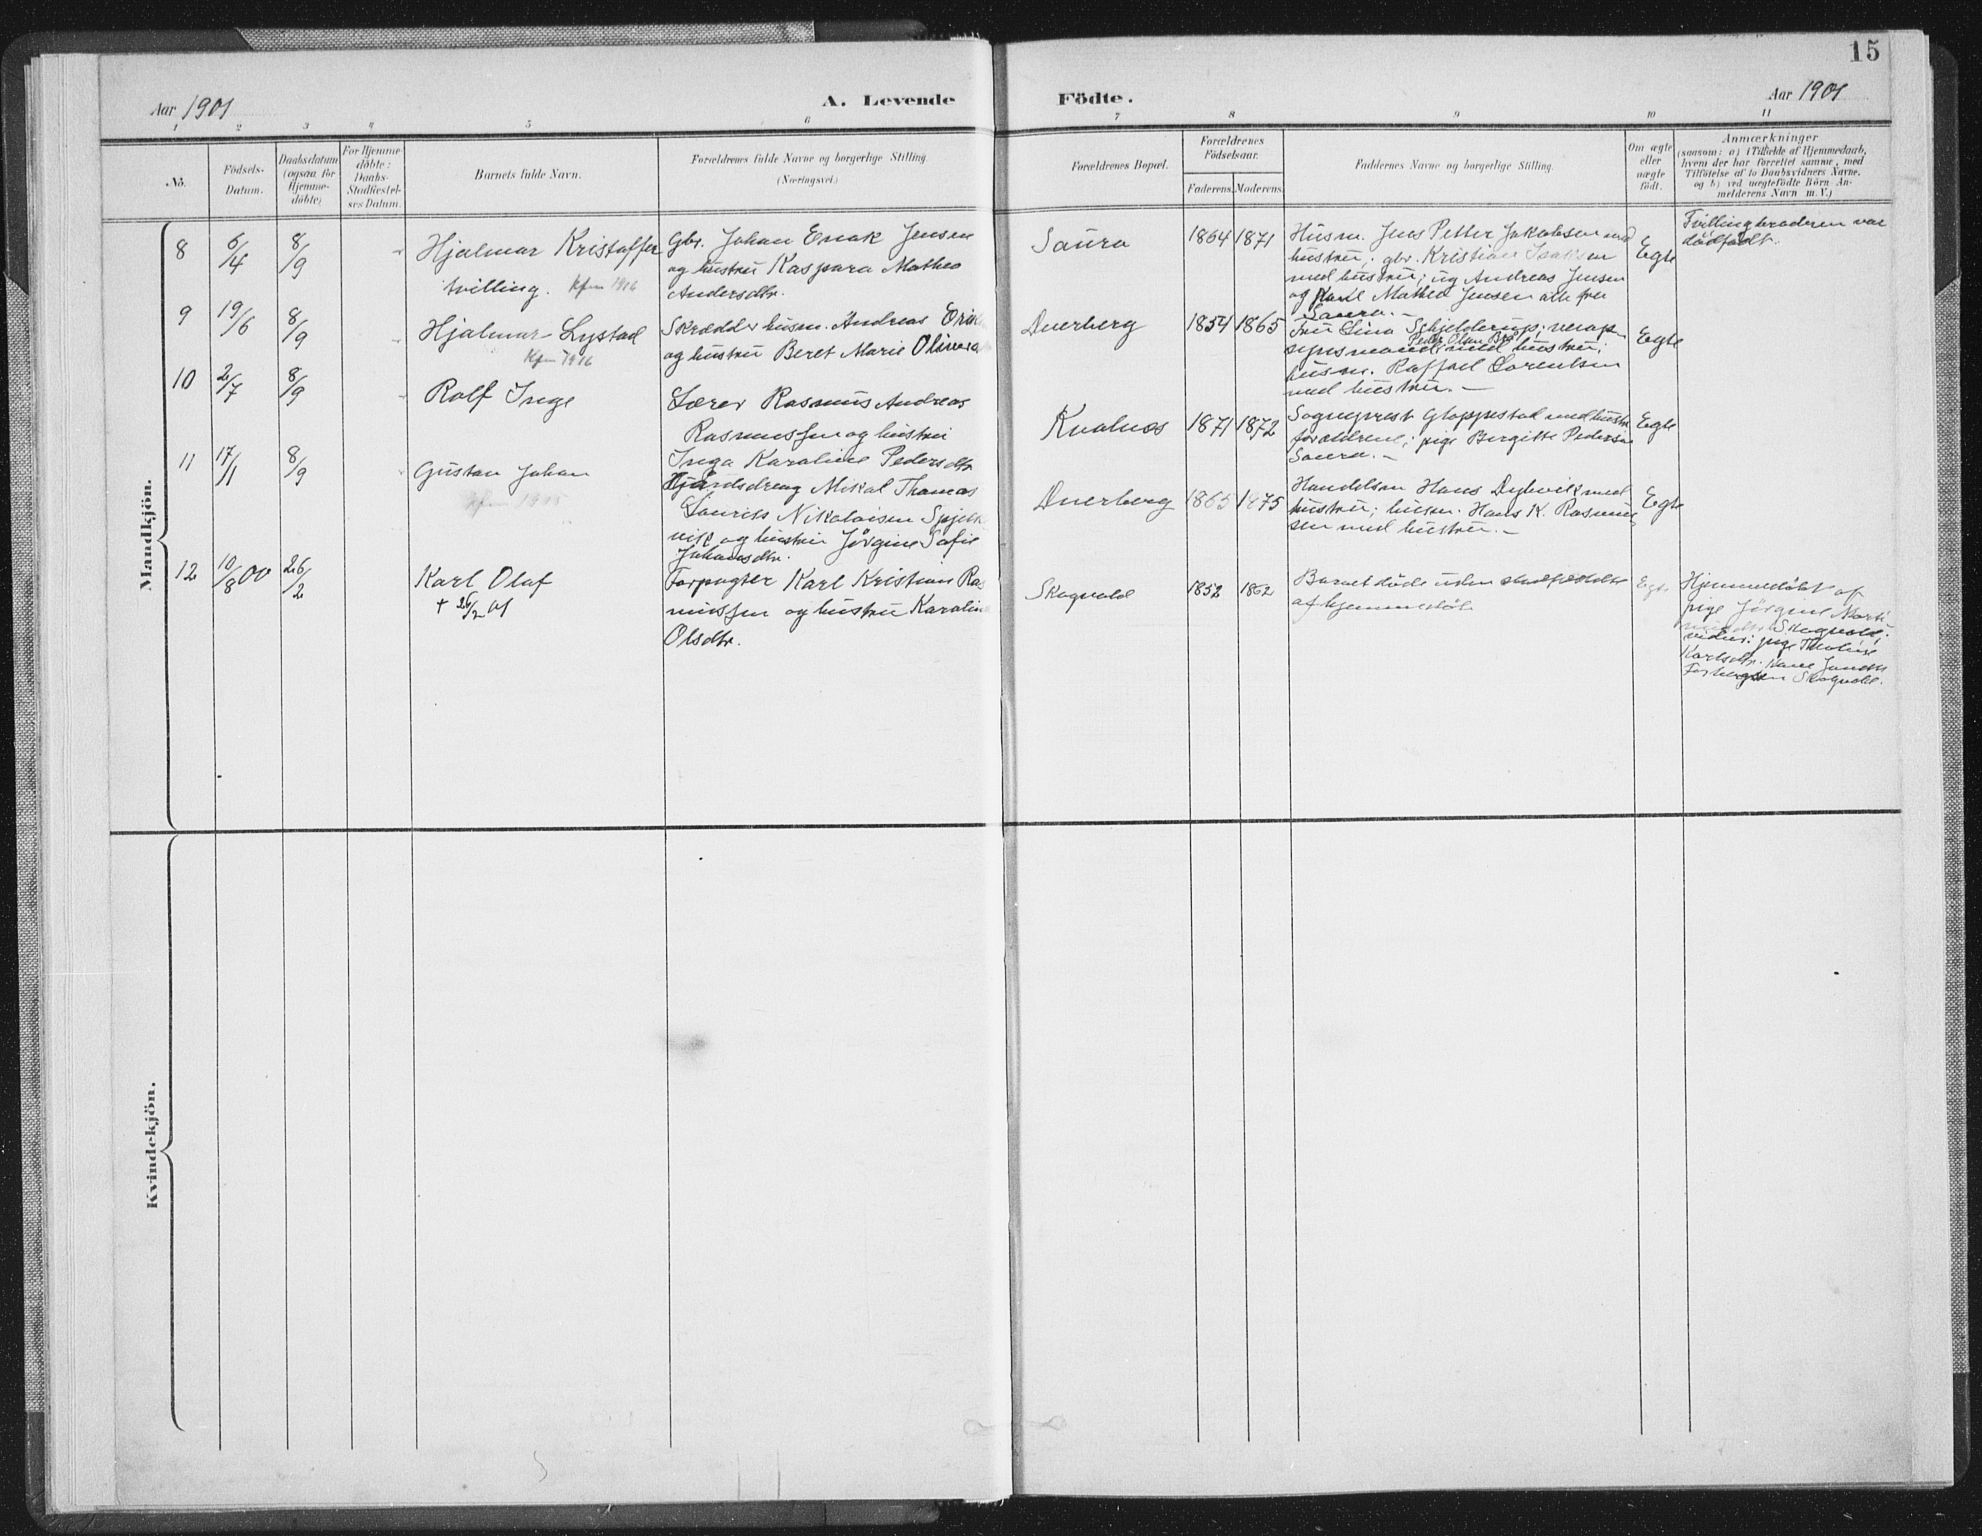 15
Aar 1901
A. Levende Födte.
Aar 1901
1 2 3 4 5 6 7 8 9 10 11
No.
Födsels-
Datum.
Daabsdatum
(ogsaa for
Hjemme-
döbte)
For Hjemme-
döbte:
Daabs-
Stadfæstel-
ses Datum.
Barnets fulde Navn.
Forældrenes fulde Navne og borgerlige Stilling
(Næringsvei.)
Forældrenes Bopæl.
Forældrenes
Födselsaar.
Faderens. Moderens.
Faddernes Navne og borgerlige Stilling.
Om ægte
eller
uægte
födt.
Anmærkninger
(saasom: a) i Tilfælde af Hjemmedaab,
hvem der har forrettet samme, med
Tilföielse af to Daabsvidners Navne,
og b) ved uægtefödte Börn An-
melderens Navn m. V.)
Mandkjön.
8
6/4
8/9
Hjalmar Kristoffer
tvilling. Kfm 1916
Gbr. Johan Enok Jensen
og hustru Kaspara Mathea
Andersdtr.
Saura
1864 1871
Husm. Jens Petter Jakobsen med
hustru; gbr. Kristian Isaksen
med hustru; ug Andreas Jensen
og Mathea Jensen alle fra
Saura. -
Egte
Tvillingbroderen var
dødfødt.
9
19/6
8/9
Hjalmar Lystad
Kfm 1916
Skrædder husm. Andreas
og hustru Beret Marie
Duerberg
1854 1865
Fru Lina Schjelderup;
Peder Olsen
med hustru;
husm. Raffael Lorentsen
med hustru. -
Egte
10
2/7
8/9
Rolf Inge
Lærer Rasmus Andreas
Rasmussen og hustru
Inga Karoline Pedersdtr.
Kvalnes
1871 1872
Sogneprest Gloppestad med hustru
forældrene; pige Bergitte Pedersen
Saura. -
Egte
11
17/1
8/9
Gustav Johan
Kfm 1915
Mikal Thomas
Laurits Nikolaisen
og hustru Jørgine Sofie
Johansdtr.
Duerberg
1865 1875
Handelsm Hans Dybvik med
hustru; husm. Hans K. Rasmus
sen med hustru. -
Egte
12
10/8 00
26/2
Karl Olaf
+ 26/2 01
Forpagter Karl Kristian Ras
mussen og hustru Karoline
Olsdtr.
Skogvold
1852 1862
Barnet døde uden stadfæstelse
af hjemmedøb.
Egte
Hjemmedøbt af
pige Jörgine Marti
Skogvold.
vidner: pige
Karlsdtr. Kone
Skogvold.
Kvindekjön.